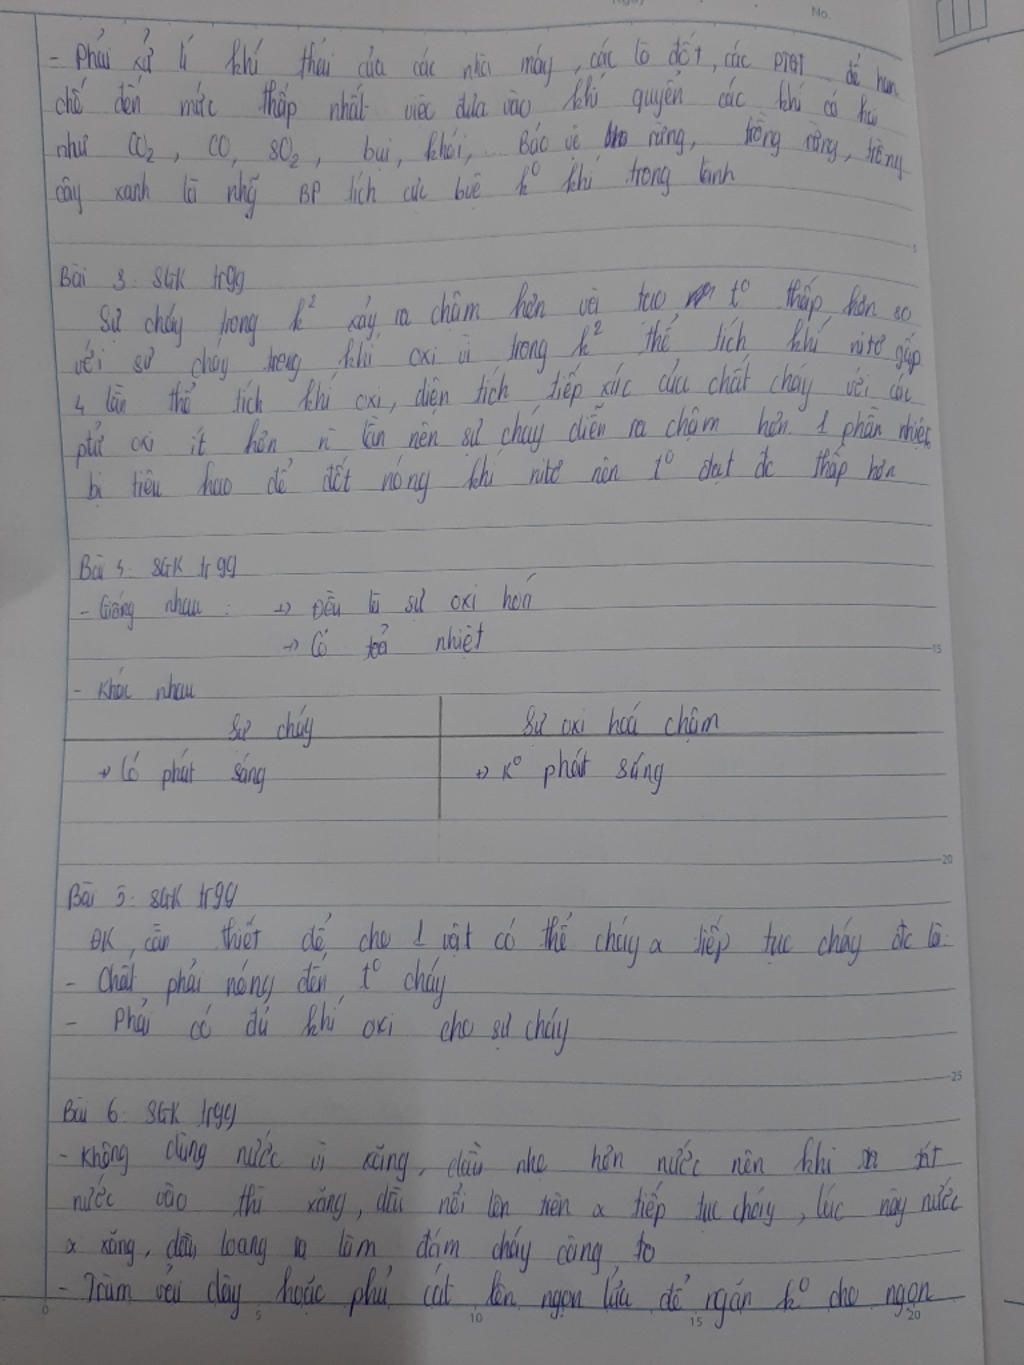 No.
- Phải xử lí khí thải của các nhà máy, các lò đốt, các PTGT để hạn
chế đến mức thấp nhất việc đưa vào khí quyển các khí có hại
như CO2, CO, SO2, bụi, khói,... Bảo vệ rừng, trồng rừng, trồng
cây xanh là nhg BP tích cực bvệ k° khí trong lành
5
Bài 3: SGK tr99
Sự cháy trong k² xảy ra chậm hơn và tạo t° thấp hơn so
với sự cháy trong khí oxi vì trong k² thể tích khí nitơ gấp
4 lần thể tích khí oxi, diện tích tiếp xúc của chất cháy với các
ptử oxi ít hơn n` lần nên sự cháy diễn ra chậm hơn. 1 phần nhiệt
bị tiêu hao để đốt nóng khí nitơ nên t° đạt đc thấp hơn
Bài 4: SGK tr99
- Giống nhau: → Đều là sự oxi hoá
→ Có toả nhiệt
15
- Khác nhau
Sự cháy Sự oxi hoá chậm
→ Có phát sáng → K° phát sáng
20
Bài 5: SGK tr99
ĐK cần thiết để cho 1 vật có thể cháy α tiếp tục cháy đc là:
- Chất phải nóng đến t° cháy
- Phải có đủ khí oxi cho sự cháy
25
Bài 6: SGK tr99
- Không dùng nước vì xăng, dầu nhẹ hơn nước nên khi
nước vào thì xăng, dầu nổi lên trên α tiếp tục cháy, lúc này nước
α xăng, dầu loang ra làm đám cháy càng to
- Trùm vải dày hoặc phủ cát lên ngọn lửa để ngăn k° cho ngọn
0 5 10 15 20